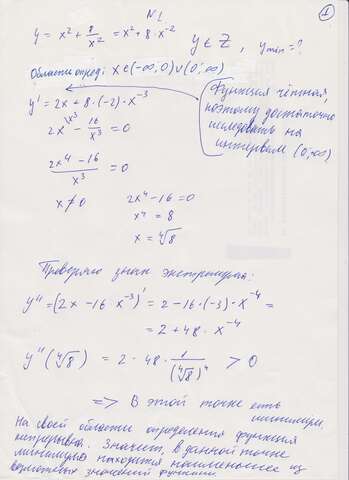 N1
1
y = x² + 8/x² = x² + 8·x⁻²
y ∈ Z, y min = ?
Области опред: x ∈ (-∞, 0) ∪ (0; ∞)
y' = 2x + 8·(-2)·x⁻³
Функция чётная,
поэтому достаточно
исследовать на
интервале (0; ∞)
2x^{\x³} - 16/x³ = 0
(2x⁴ - 16)/x³ = 0
x ≠ 0 2x⁴ - 16 = 0
x⁴ = 8
x = ⁴√8
Проверяю знак экстремума:
y'' = (2x - 16 x⁻³)' = 2 - 16·(-3)·x⁻⁴ =
= 2 + 48·x⁻⁴
y''(⁴√8) = 2·48·1/(⁴√8)⁴ > 0
=> в этой точке есть
минимум.
На своей области определения функция
непрерывна. Значит, в данной точке
минимума находится наименьшее из
возможных значений функции.